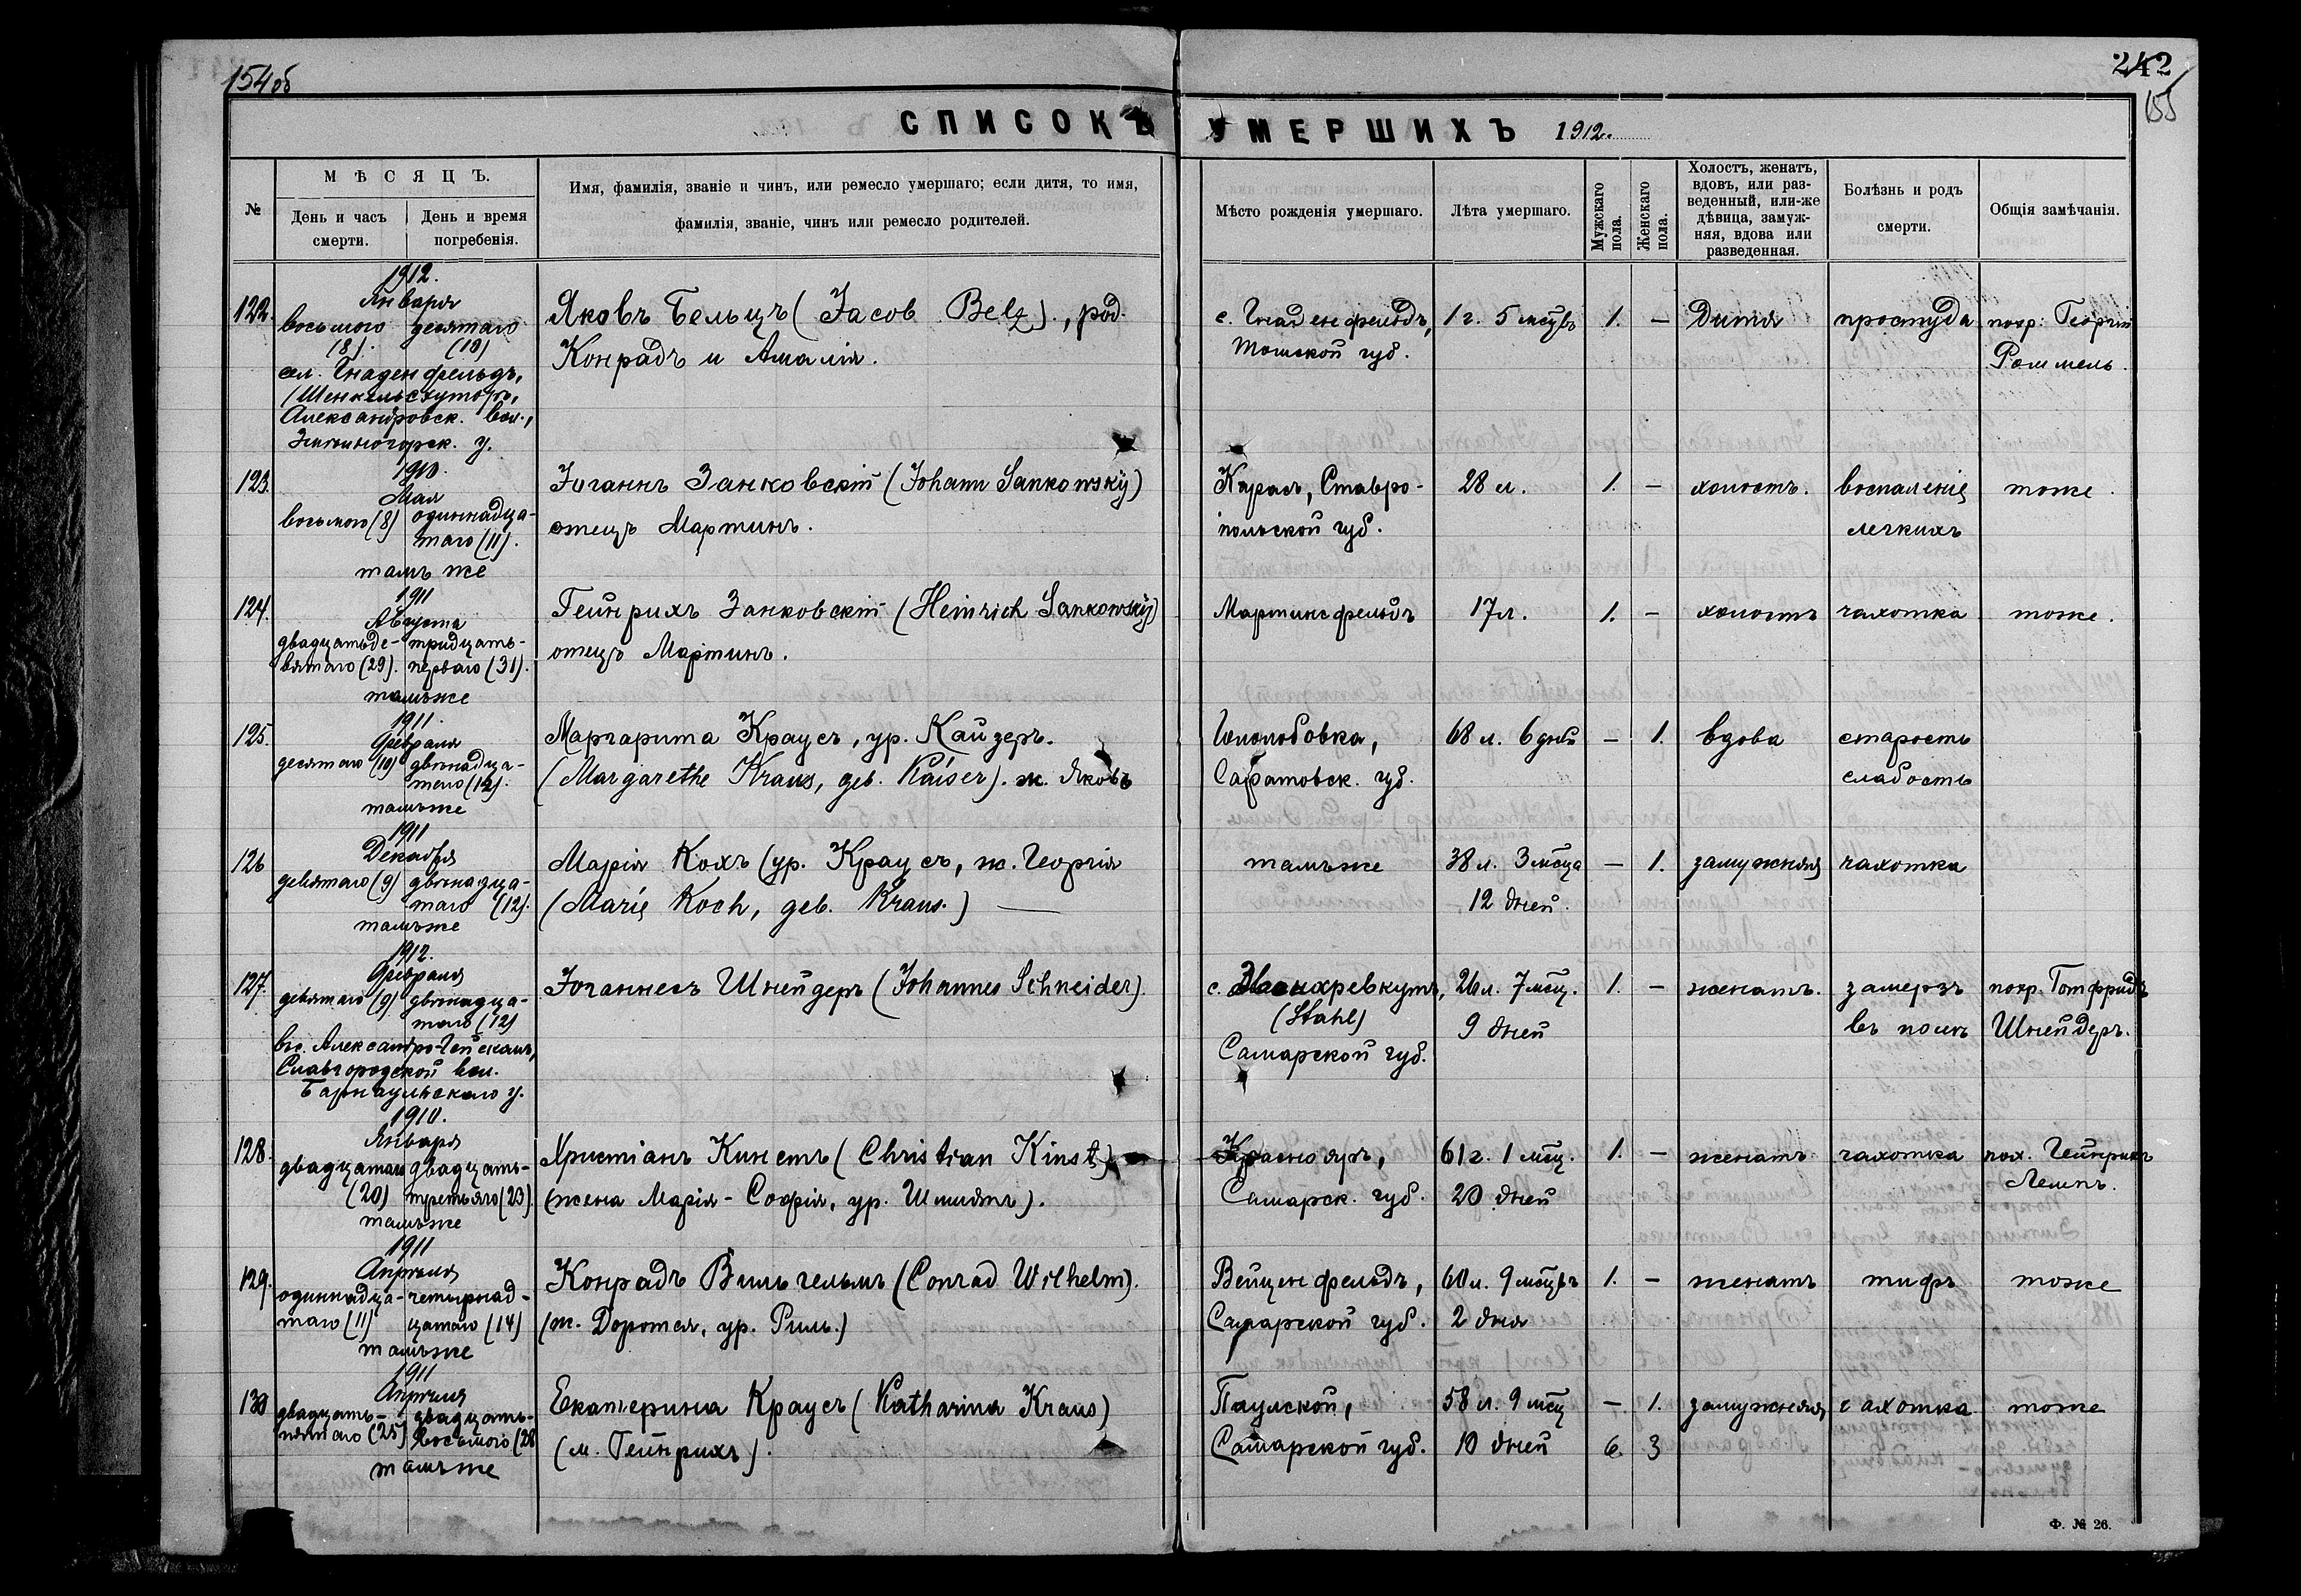 154об
242
155
СПИСОКЪ УМЕРШИХЪ 1912.
№
МѢСЯЦЪ.
День и часъ смерти.
День и время погребенія.
Имя, фамилія, званіе и чинъ, или ремесло умершаго; если дитя, то имя,
фамилія, званіе, чинъ или ремесло родителей.
Мѣсто рожденія умершаго.
Лѣта умершаго.
Мужскаго пола.
Женскаго пола.
Холостъ, женатъ,
вдовъ, или раз-
веденный, или-же
дѣвица, замуж-
няя, вдова или
разведенная.
Болѣзнь и родъ
смерти.
Общія замѣчанія.
1912.
Января
122. восьмого десятаго Яковъ Бельцъ (Jacob Belz)., род. с. Гнаденфельдъ, 1 г. 5 мсцвъ 1. — Дитя простуда похр: Георгій
(8). (10) Конрадъ и Амалія. Томской губ. Роммель.
сел. Гнаденфельдъ,
Александровск. вол.,
Змѣиногорск. у.
1910.
Мая
123. восьмого (8) одиннадца- Іоганнъ Занковскій (Johann Sankowsky) Карасъ, Ставро- 28 л. 1. — холостъ. воспаленіе тоже.
таго (11). отецъ Мартинъ. польской губ. легкихъ
тамъ же
1911
Августа
124. двадцатьде- тридцать- Гейнрихъ Занковскій (Heinrich Sankowsky) Мартинсфельдъ 17 л. 1. — холостъ чахотка тоже.
вятаго (29). перваго (31). отецъ Мартинъ.
тамъже
1911.
Февраля
125. десятаго (10) двѣнадца- Маргарита Краусъ, ур. Кайзеръ. Гололобовка, 68 л. 6 дней — 1. вдова старость
таго (12). (Margarethe Kraus, geb. Kaiser). ж. Яковъ Саратовск. губ. слабость
тамъже
1911
Декабря
126 девятаго (9) двѣнадца- Марія Кохъ (ур. Краусъ, ж. Георгія тамъже 38 л. 3 мсца — 1. замужняя чахотка
таго (12). (Marie Koch, geb. Kraus.) — 12 дней.
тамъже
1912.
Февраля
127. девятаго (9) двѣнадца- Іоганнесъ Шнейдеръ (Johannes Schneider). с. 26 л. 7 мсц. 1. — женатъ. замерзъ похр. Готфридъ
таго (12) (Stahl) 9 дней въ полѣ Шнейдеръ.
Самарской губ.
Славгородской вол.
Барнаульскаго у.
1910.
Января
128. двадцатаго двадцать- Христіанъ Кинстъ (Christian Kinst) Краснояръ, 61 г. 1 мсц. 1. — женатъ. чахотка пох. Гейнрихъ
(20) третьяго (23). (жена Марія-Софія, ур. Шмидтъ). Самарск. губ. 20 дней
тамъже
1911
Апрѣля
129. одиннадца- четырнад- Конрадъ Вильгельмъ (Conrad Wilhelm). Вейценфельдъ, 60 л. 9 мсцвъ 1. — женатъ тифъ тоже
таго (11) цатаго (14) (ж. Доротея, ур. Риль.) Самарской губ. 2 дня
тамъже
1911
Апрѣля
130 двадцать- двадцать- Екатерина Краусъ (Katharina Kraus) Паулской, 58 л. 9 мсц — 1. замужняя чахотка тоже
пятаго (25) восьмого (28 (м. Гейнрихъ). Самарской губ. 10 дней 6 3
тамъже
Ф. № 26.